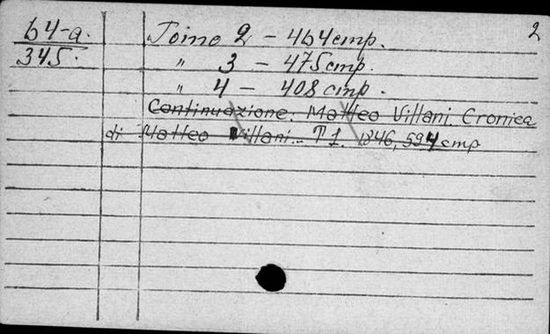 2
64-a.
345.
Tomo 2 - 464 стр.
" 3 - 475 стр.
" 4 - 408 стр.
Continuazione: Matteo Villani. Cronica
di Matteo Villani. T 1. 1846, 594 стр